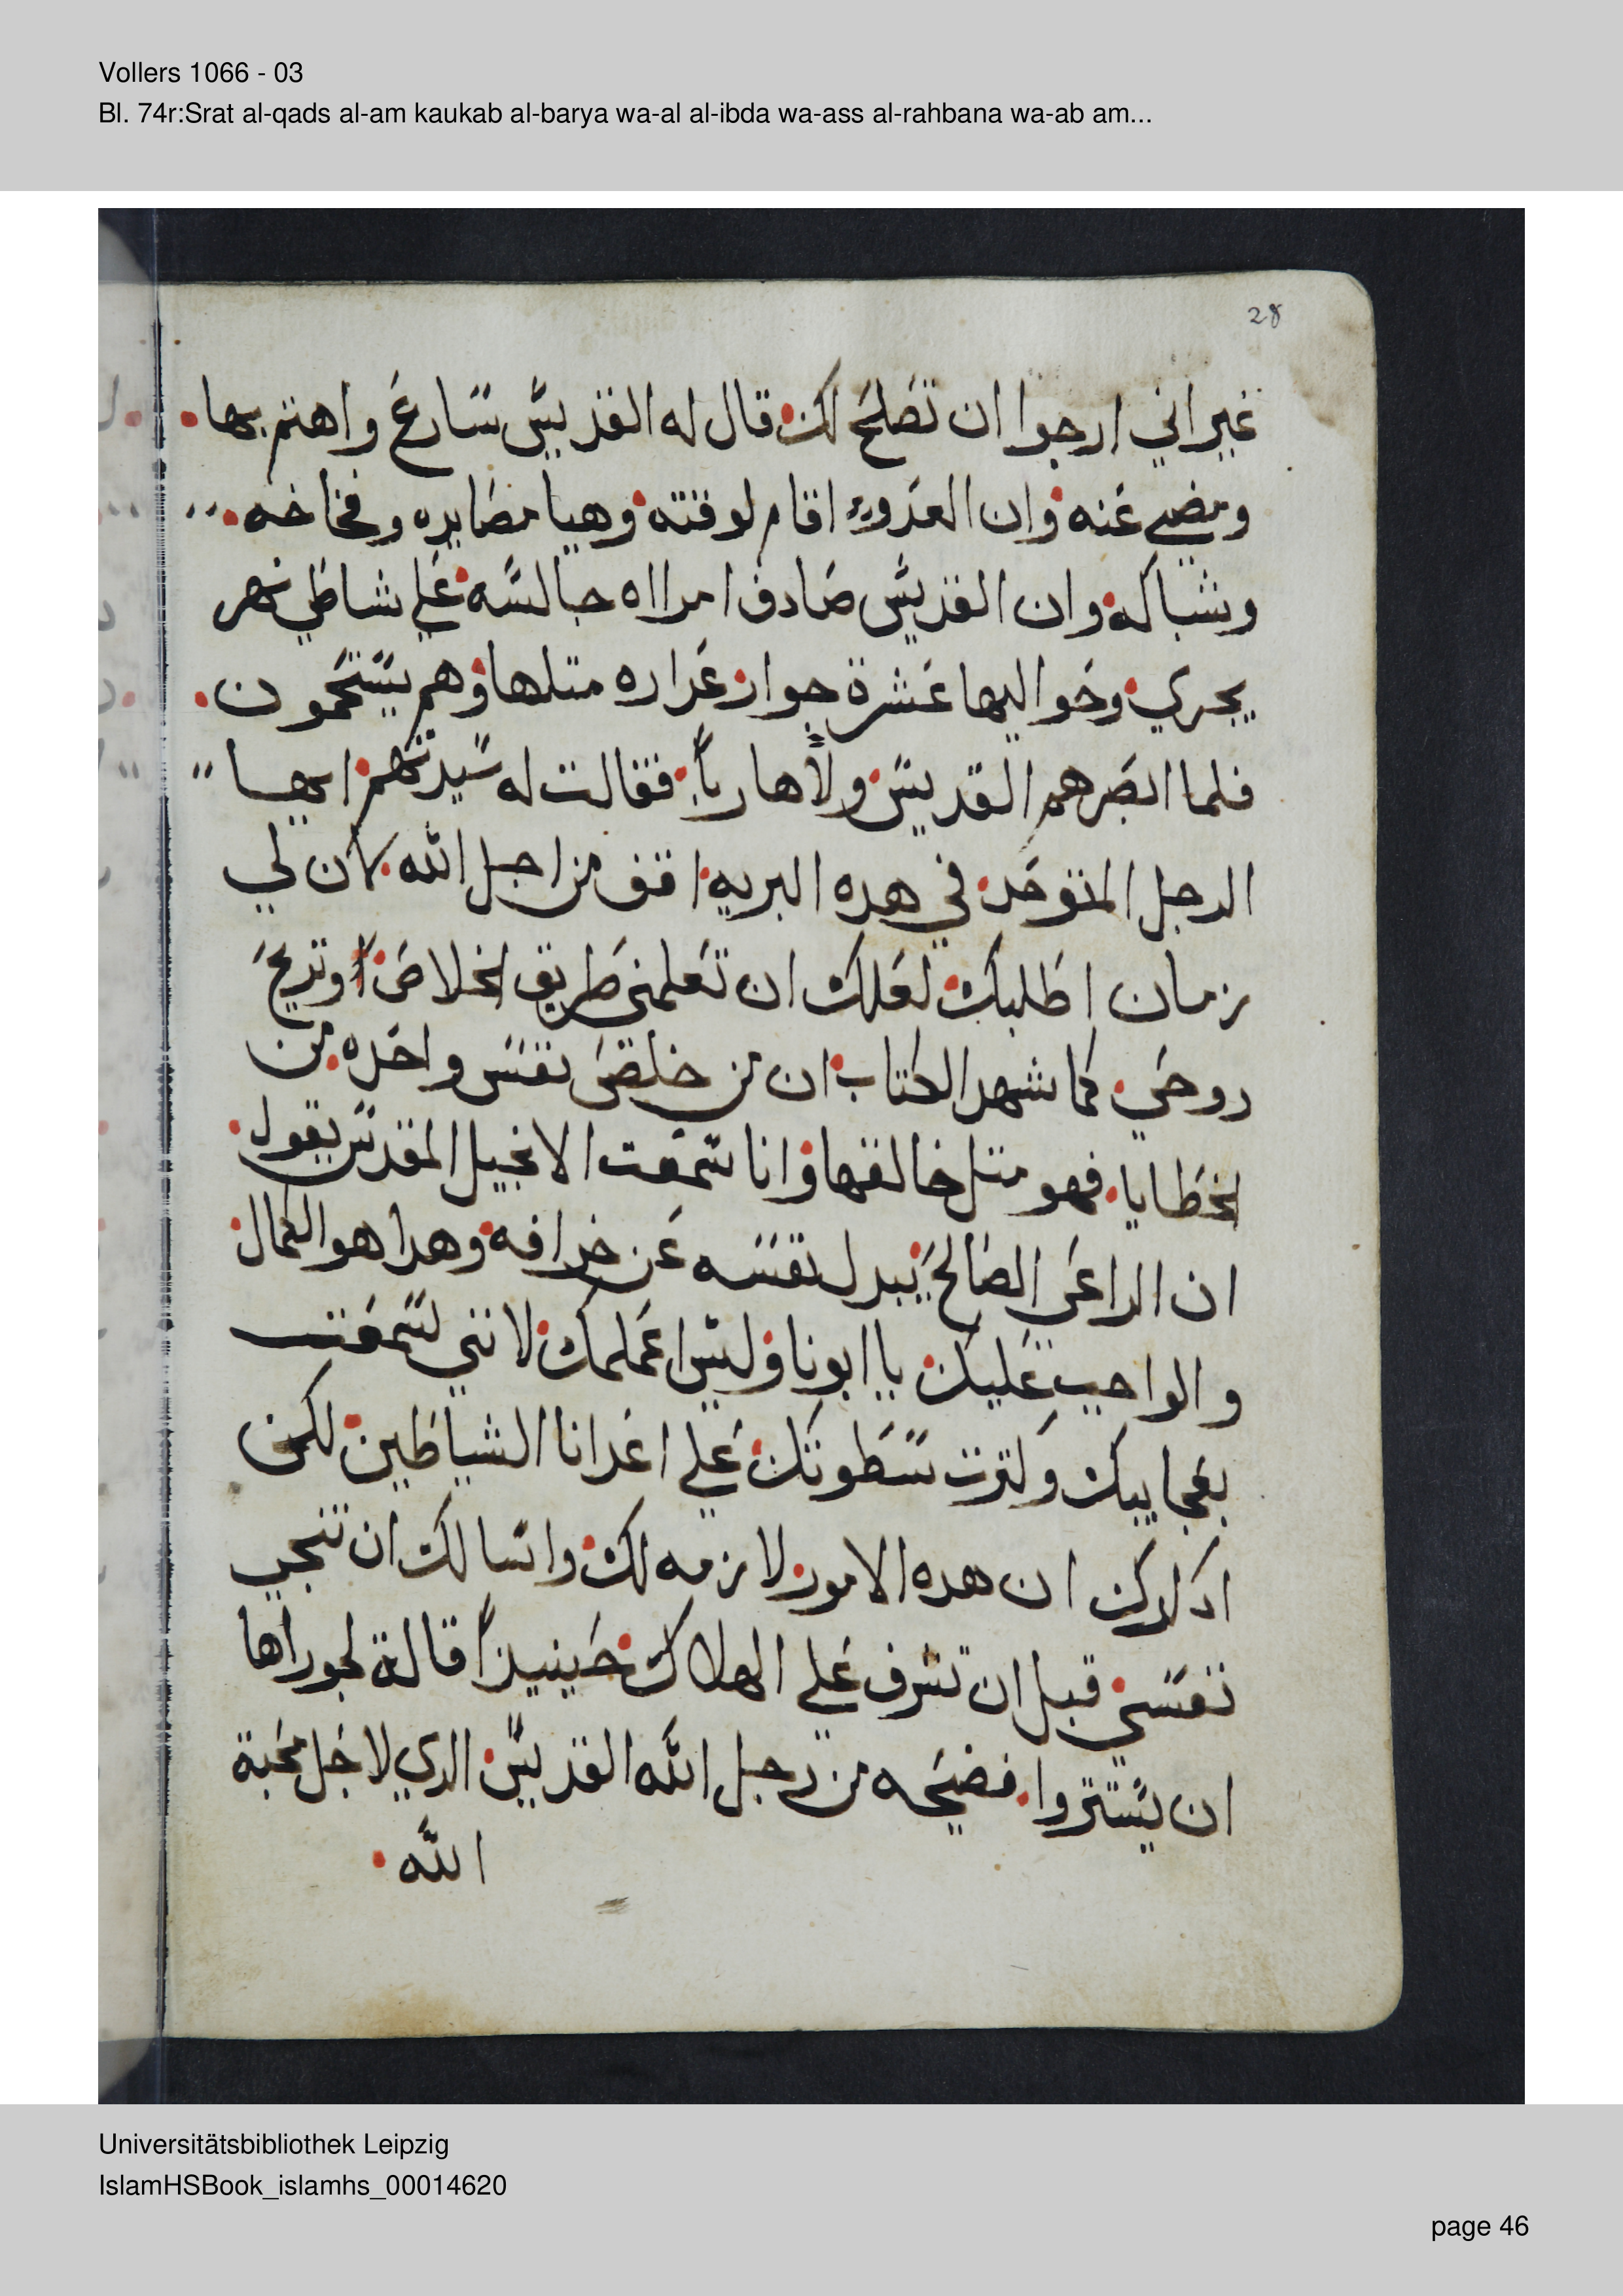 Vollers 1066 - 03
Bl. 74r:Srat al-qads al-am kaukab al-barya wa-al al-ibda wa-ass al-rahbana wa-ab am...
28
غير اني ارجوا ان تصلح لك قال له القديس سارع واهتم بها
ومضي عنه وان العدو اقام لوقته وهيا مصايده وفخاخه
وشباكه وان القديس صادف امرااه جالسه علي شاطي نهر
يجري وحواليها عشرة جوار عداره متلها وهم يستحمون
فلما ابصرهم القديس ولا هارباً فقالت له سيدتهم ايها
الرجل المتوحد في هده البريه اقف من اجل الله كان لي
زمان اطلبك لعلك ان تعلمني طريق الخلاص اً وتربح
روحي كما شهد الكتاب ان من خلص نفس واحده من
الخطايا فهو متل خالقها وانا سمعت الانجيل المقدس يقول
ان الراعي الصالح يبدل نفسه عن خرافه وهدا هو الكمال
والواجب عليك يا ابونا وليس اعملك لانني لسمعت
بعجايبك وكترت سطوتك علي اعدانا الشياطين لكني
ادكرك ان هده الامور لازمه لك واسالك ان تنجي
نفسي قبل ان تشرف علي الهلاك حينيذاً قالة لجوراها
ان يستتروا فضيحه من رجل الله القديس الدي لاجل محبة
الله
Universitätsbibliothek Leipzig
IslamHSBook_islamhs_00014620
page 46